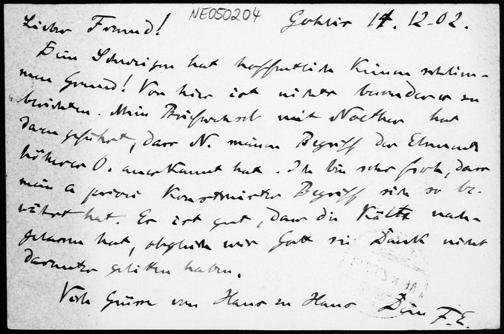 NE050204
Gohlis 14. 12. 02.
Lieber Freund!
Dein Schweigen hat hoffentlich keinen schlim-
men Grund! Von hier ist nichts besonderes zu
berichten. Mein Briefwechsel mit Noether hat
dazu geführt, dass N. meinen Begriff der Elemente
höherer O. anerkannt hat. Ich bin sehr froh, dass
mein a priori konstruierter Begriff sich so be-
währt hat. Es ist gut, dass die Kälte nach-
gelassen hat, obgleich wir Gott sei Dank nicht
darunter gelitten haben.
Viele Grüsse von Haus zu Haus Dein F. E.